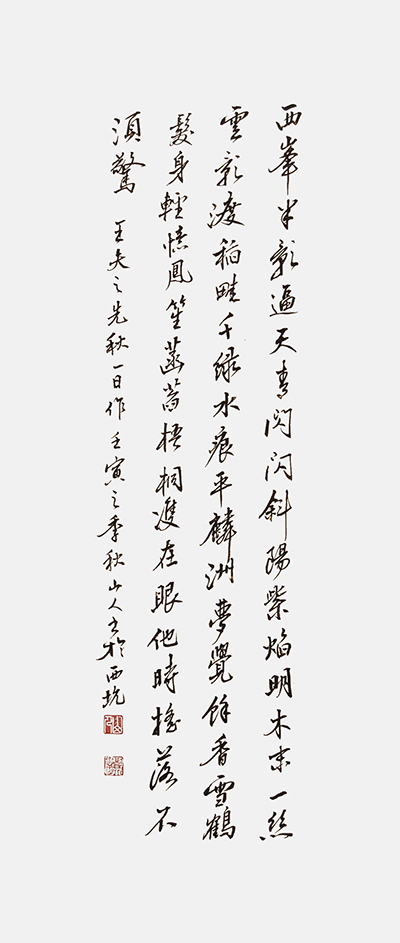 西峯半影逼天青閃閃斜陽紫焰明木末一絲
雲影渡稻畦千綠水痕平麟洲夢覺餘香雪鶴
髮身輕憶鳳笙菡萏梧桐雙在眼他時搖落不
須驚 王夫之先秋一日作壬寅之季秋山人書於西坑